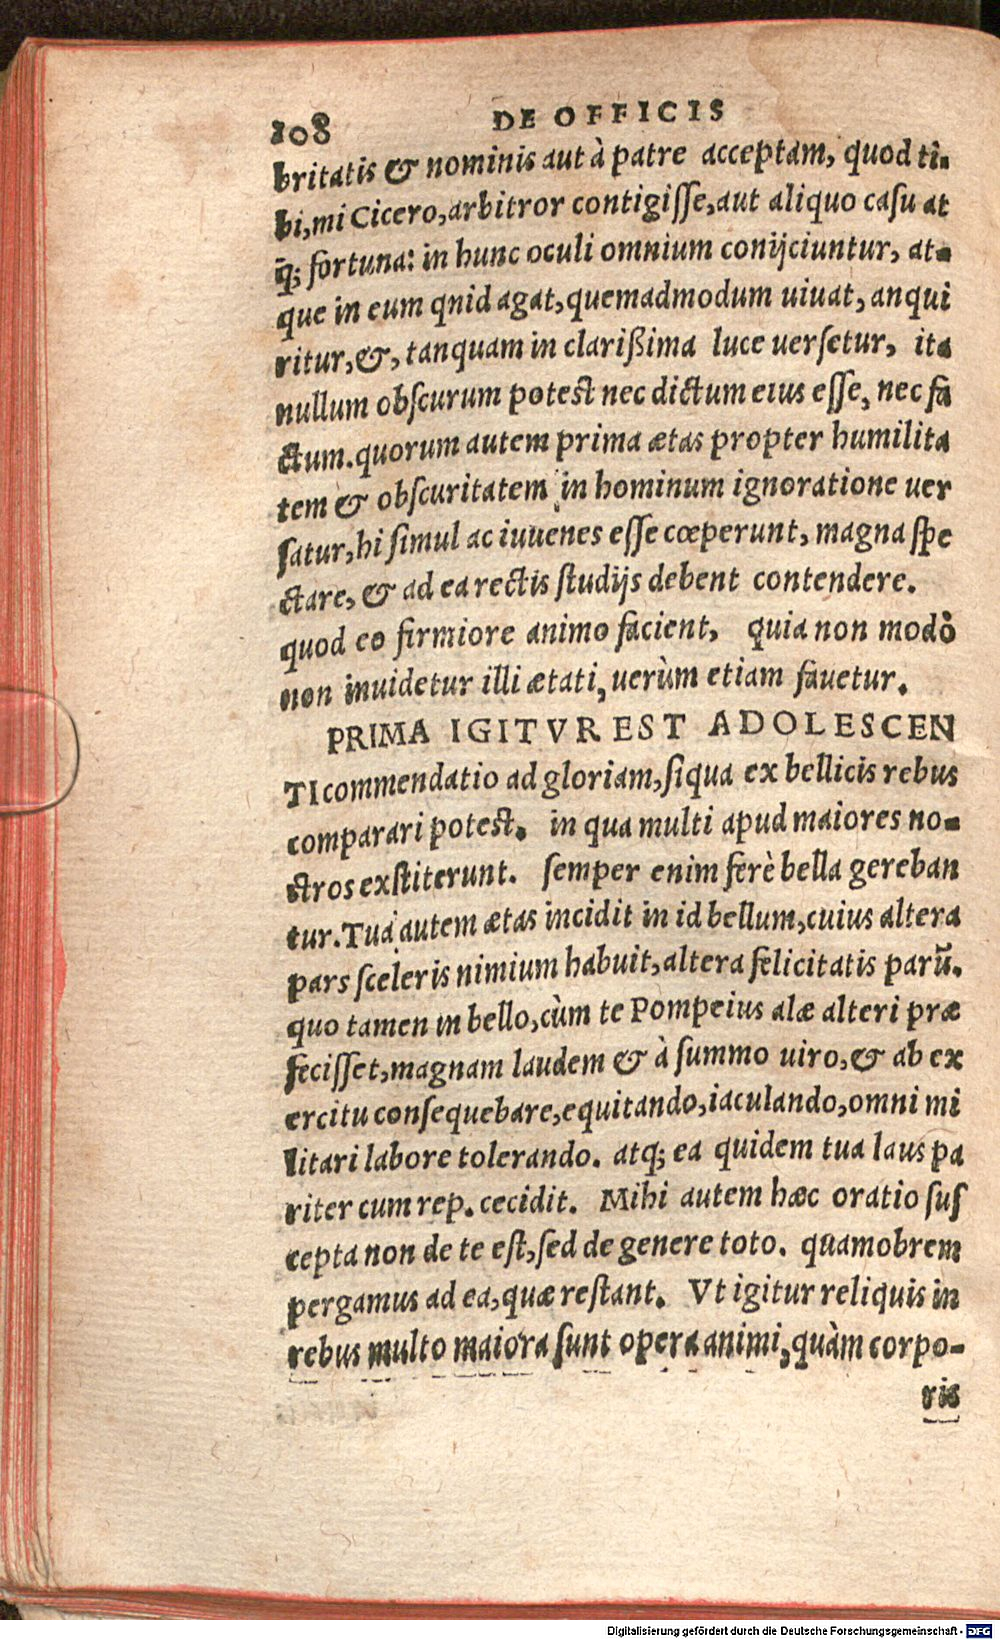 108 DE OFFICIS
britatis & nominis aut à patre acceptam, quod ti-
bi, mi Cicero, arbitror contigisse, aut aliquo casu at
q; fortuna: in hunc oculi omnium conijciuntur, at-
que in eum qnid agat, quemadmodum uiuat, anqui
ritur, &, tanquam in clarißima luce uersetur, ita
nullum obscurum potest nec dictum eius esse, nec fa
ctum. quorum autem prima ætas propter humilita
tem & obscuritatem in hominum ignoratione uer
satur, hi simul ac iuuenes esse cœperunt, magna spe
ctare, & ad ea rectis studijs debent contendere.
quod eo firmiore animo facient, quia non modò
non inuidetur illi ætati, uerùm etiam fauetur.
PRIMA IGITVR EST ADOLESCEN
TI commendatio ad gloriam, siqua ex bellicis rebus
comparari potest. in qua multi apud maiores no-
stros exstiterunt. semper enim ferè bella gereban
tur. Tua autem ætas incidit in id bellum, cuius altera
pars sceleris nimium habuit, altera felicitatis parū.
quo tamen in bello, cùm te Pompeius alæ alteri præ
fecisset, magnam laudem & à summo uiro, & ab ex
ercitu consequebare, equitando, iaculando, omni mi
litari labore tolerando. atq; ea quidem tua laus pa
riter cum rep. cecidit. Mihi autem hæc oratio sus
cepta non de te est, sed de genere toto. quamobrem
pergamus ad ea, quæ restant. Vt igitur reliquis in
rebus multo maiora sunt opera animi, quàm corpo-
ris
Digitalisierung gefördert durch die Deutsche Forschungsgemeinschaft - DFG